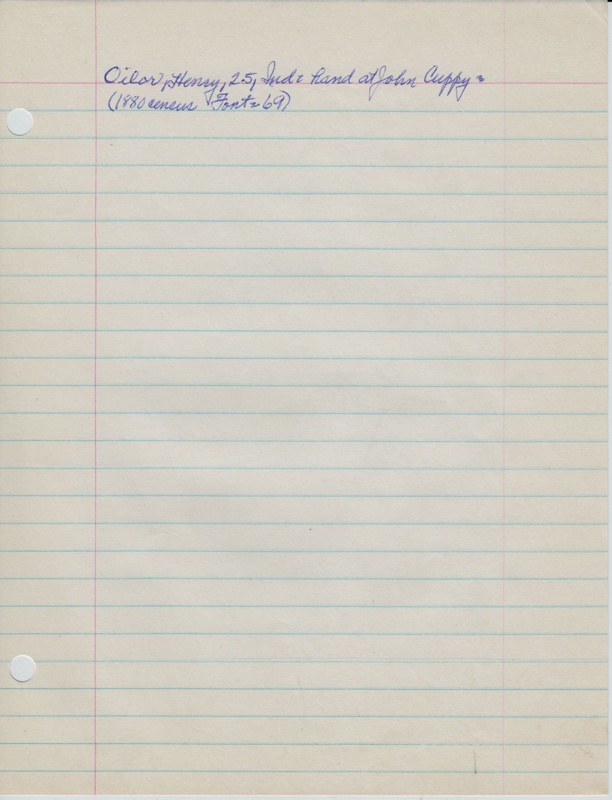 Oilar, Henry, 25, Ind: hand at John Cuppy=
(1880 census Font=69)